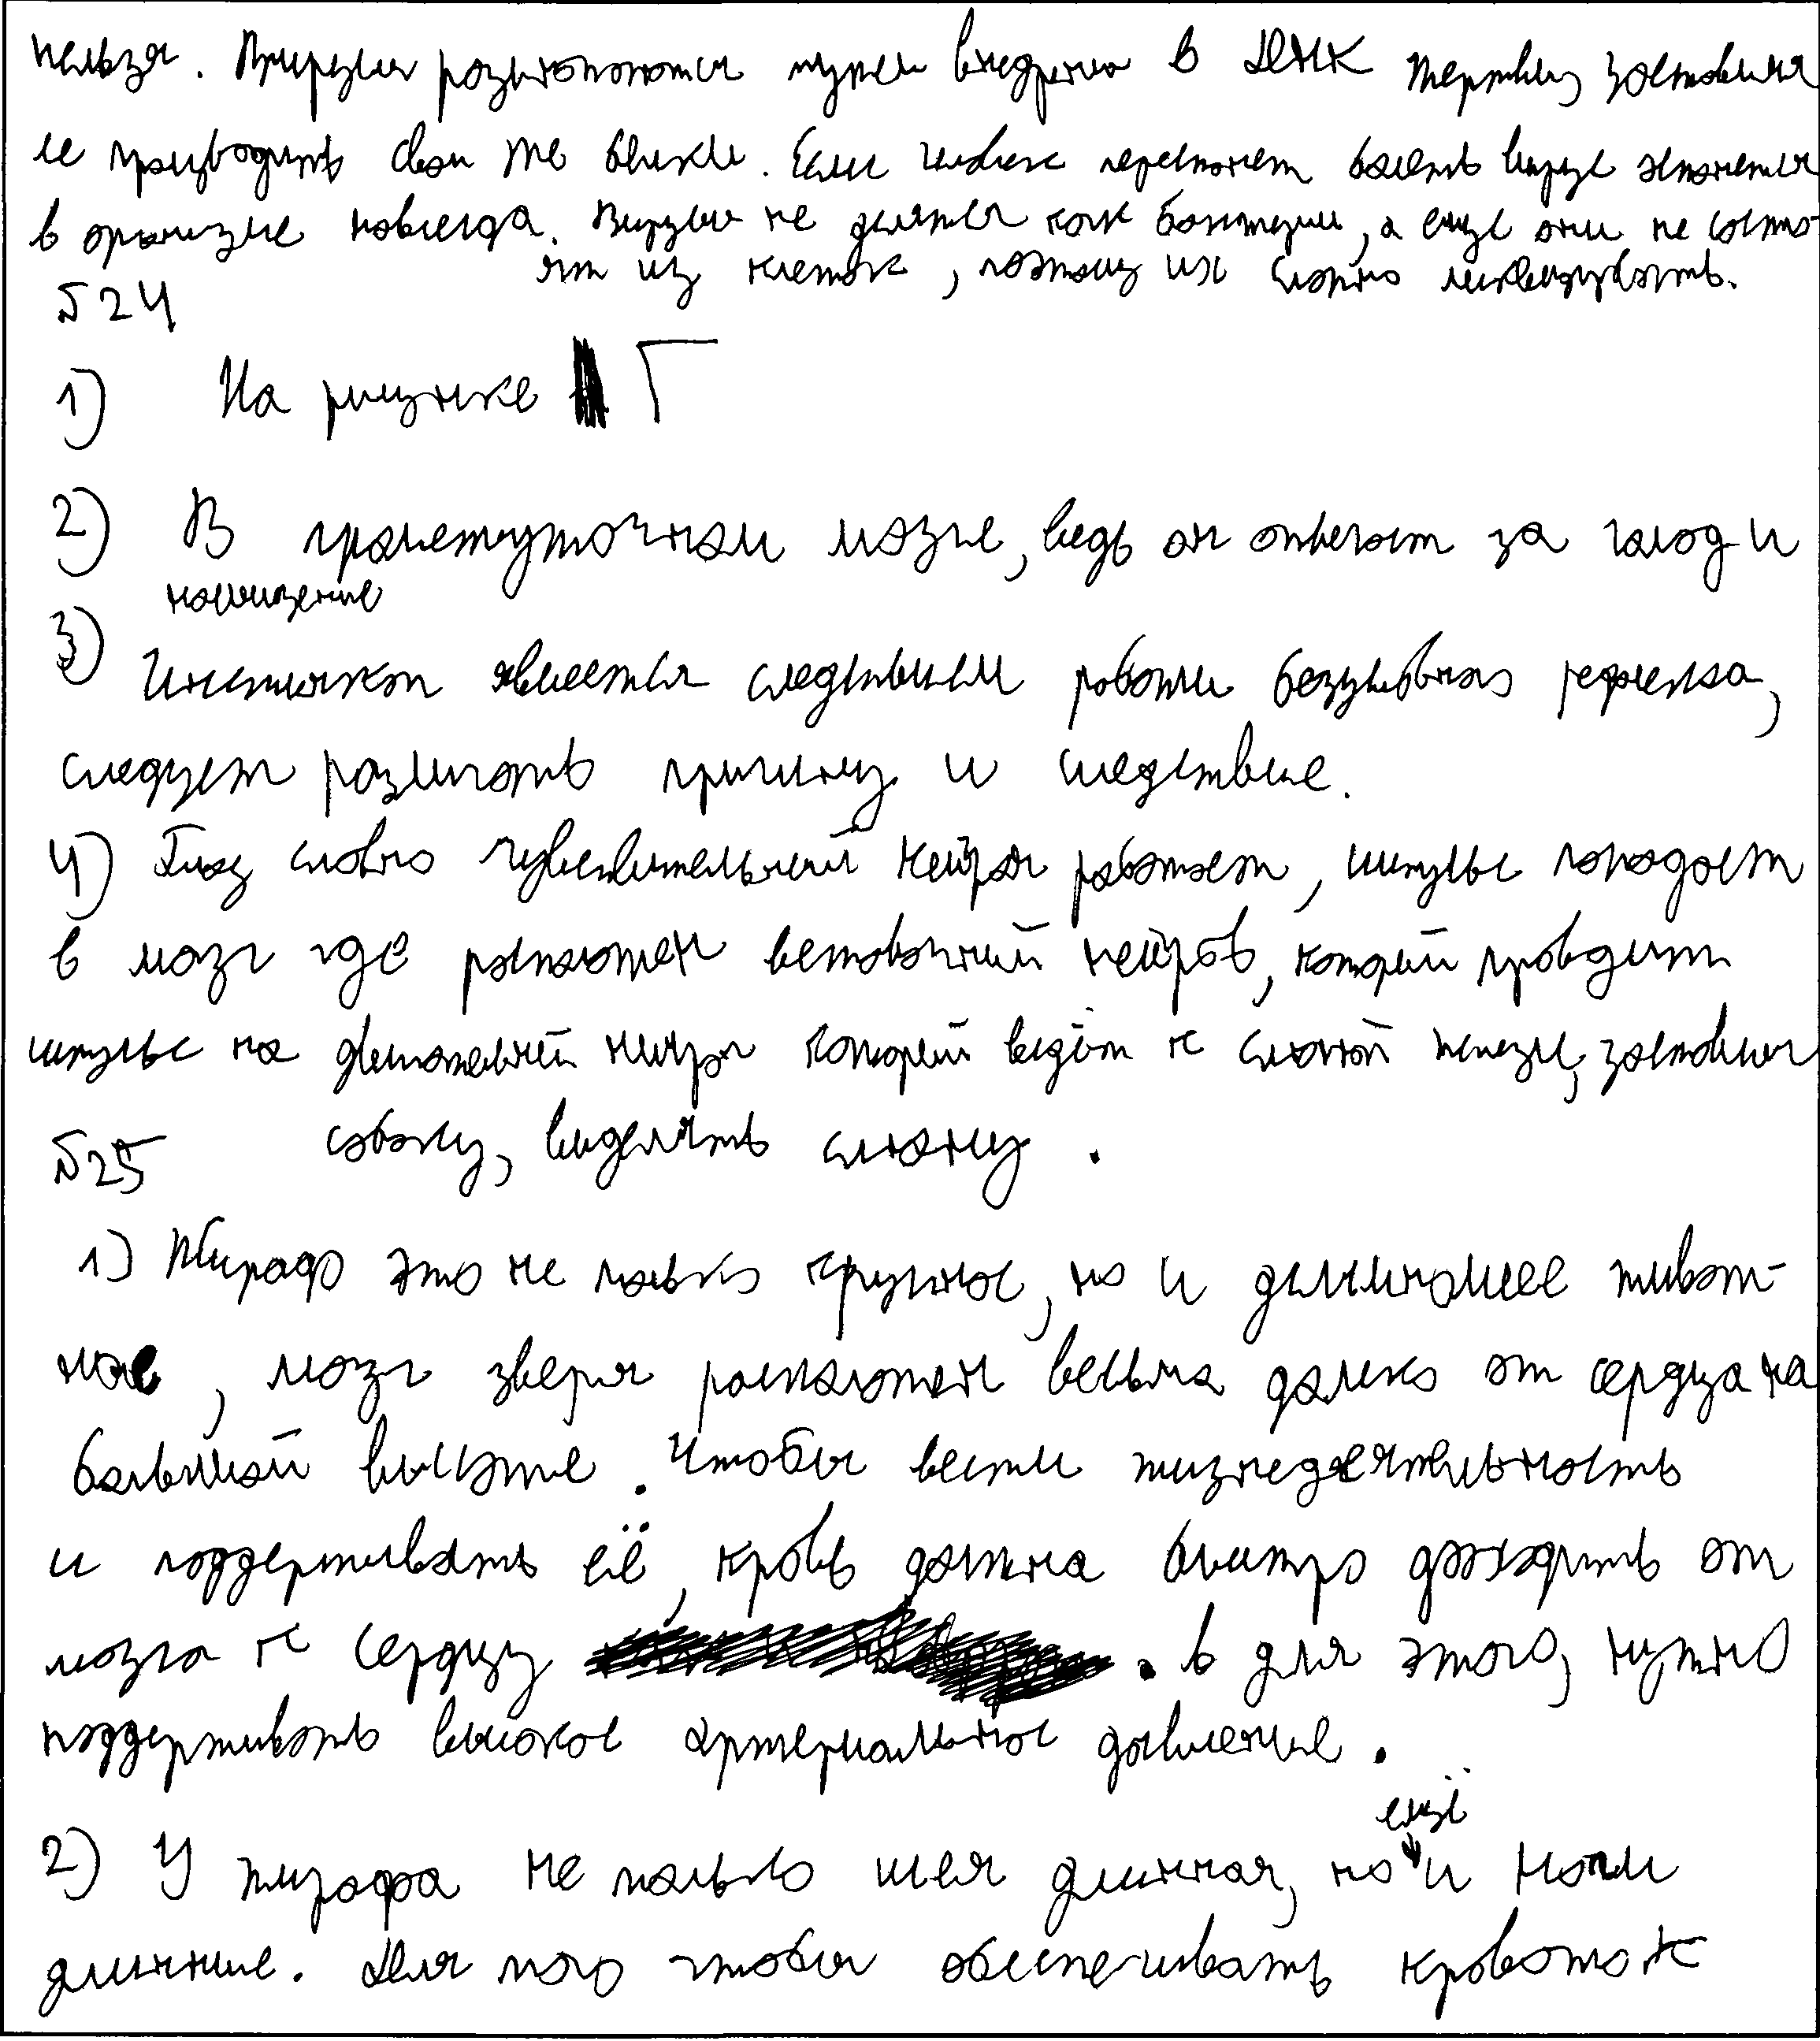 нельзя. Вирусы размножаются путем внедрения в ДНК жертвы, заставляя
ее производить свои же белки. Если человек перестанет болеть вирус останется
в организме навсегда. Вирусы не делятся как бактерии, а еще они не состо-
ят из клеток, поэтому их сложно ликвидировать.
№24
1) На рисунке Г
2) В промежуточном мозге, ведь он отвечает за голод и
насыщение
3) Инстинкт является следствием работы безусловного рефлекса,
следует различать причину и следствие.
4) Глаз словно чувствительный нейрон работает, импульс попадает
в мозг где расположен вставочный нейров, который проводит
импульс на двигательный нейрон который ведёт к слюнной железе, заставляя
собаку, выделять слюну.
№25
1) Жираф это не только крупное, но и длинношее живот-
ное, мозг зверя расположен весьма далеко от сердца на
большой высоте. Чтобы вести жизнедеятельность
и поддерживать её, кровь должна быстро доходить от
мозга к сердцу . в для этого, нужно
поддерживать высокое артериальное давление.
ещё
2) У жирафа не только шея длинная, но и ноги
длинные. Для того чтобы обеспечивать кровоток